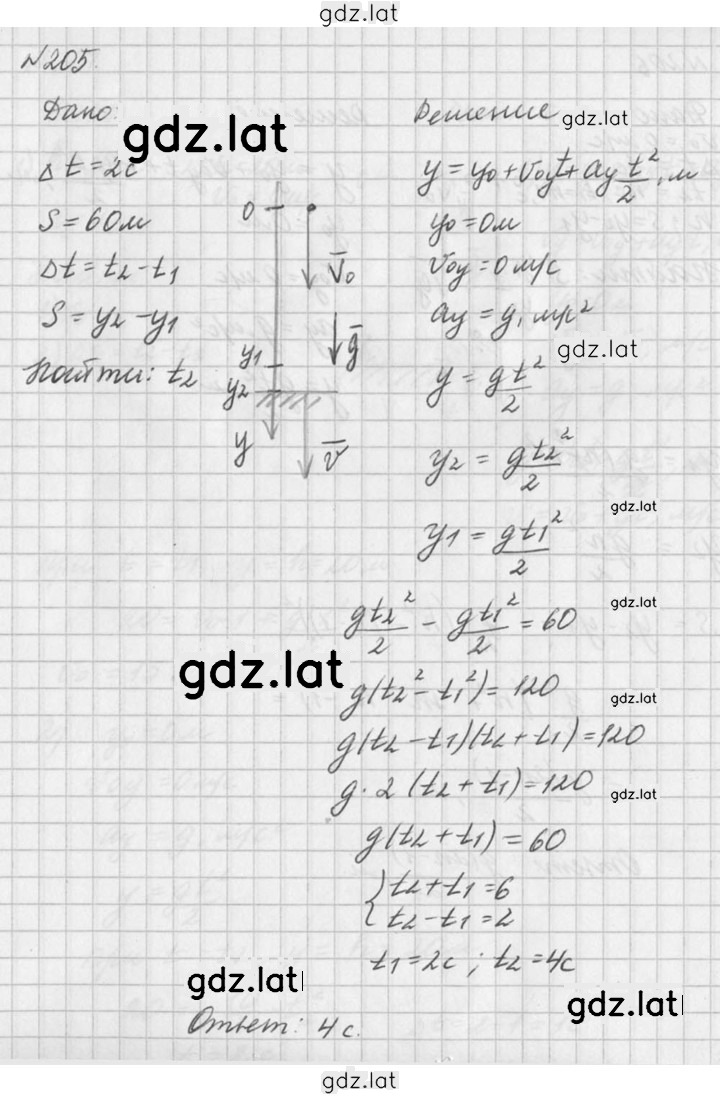 gdz.lat
N205.
Дано:
gdz.lat
Δt = 2с
S = 60м
Δt = t₂ - t₁
S = y₂ - y₁
Найти: t₂
0
v̄₀
ḡ
y₁
y₂
y
v̄
Решение
gdz.lat
y = y₀ + v₀yt + ay t²/2, м
y₀ = 0м
v₀y = 0 м/с
ay = g, м/с²
gdz.lat
y = gt²/2
y₂ = gt₂²/2
gdz.lat
y₁ = gt₁²/2
gdz.lat
gt₂²/2 - gt₁²/2 = 60
gdz.lat
g(t₂² - t₁²) = 120
gdz.lat
g(t₂ - t₁)(t₂ + t₁) = 120
g · 2 (t₂ + t₁) = 120
gdz.lat
g(t₂ + t₁) = 60
{ t₂ + t₁ = 6
t₂ - t₁ = 2
t₁ = 2с ; t₂ = 4с
gdz.lat
gdz.lat
Ответ: 4с.
gdz.lat